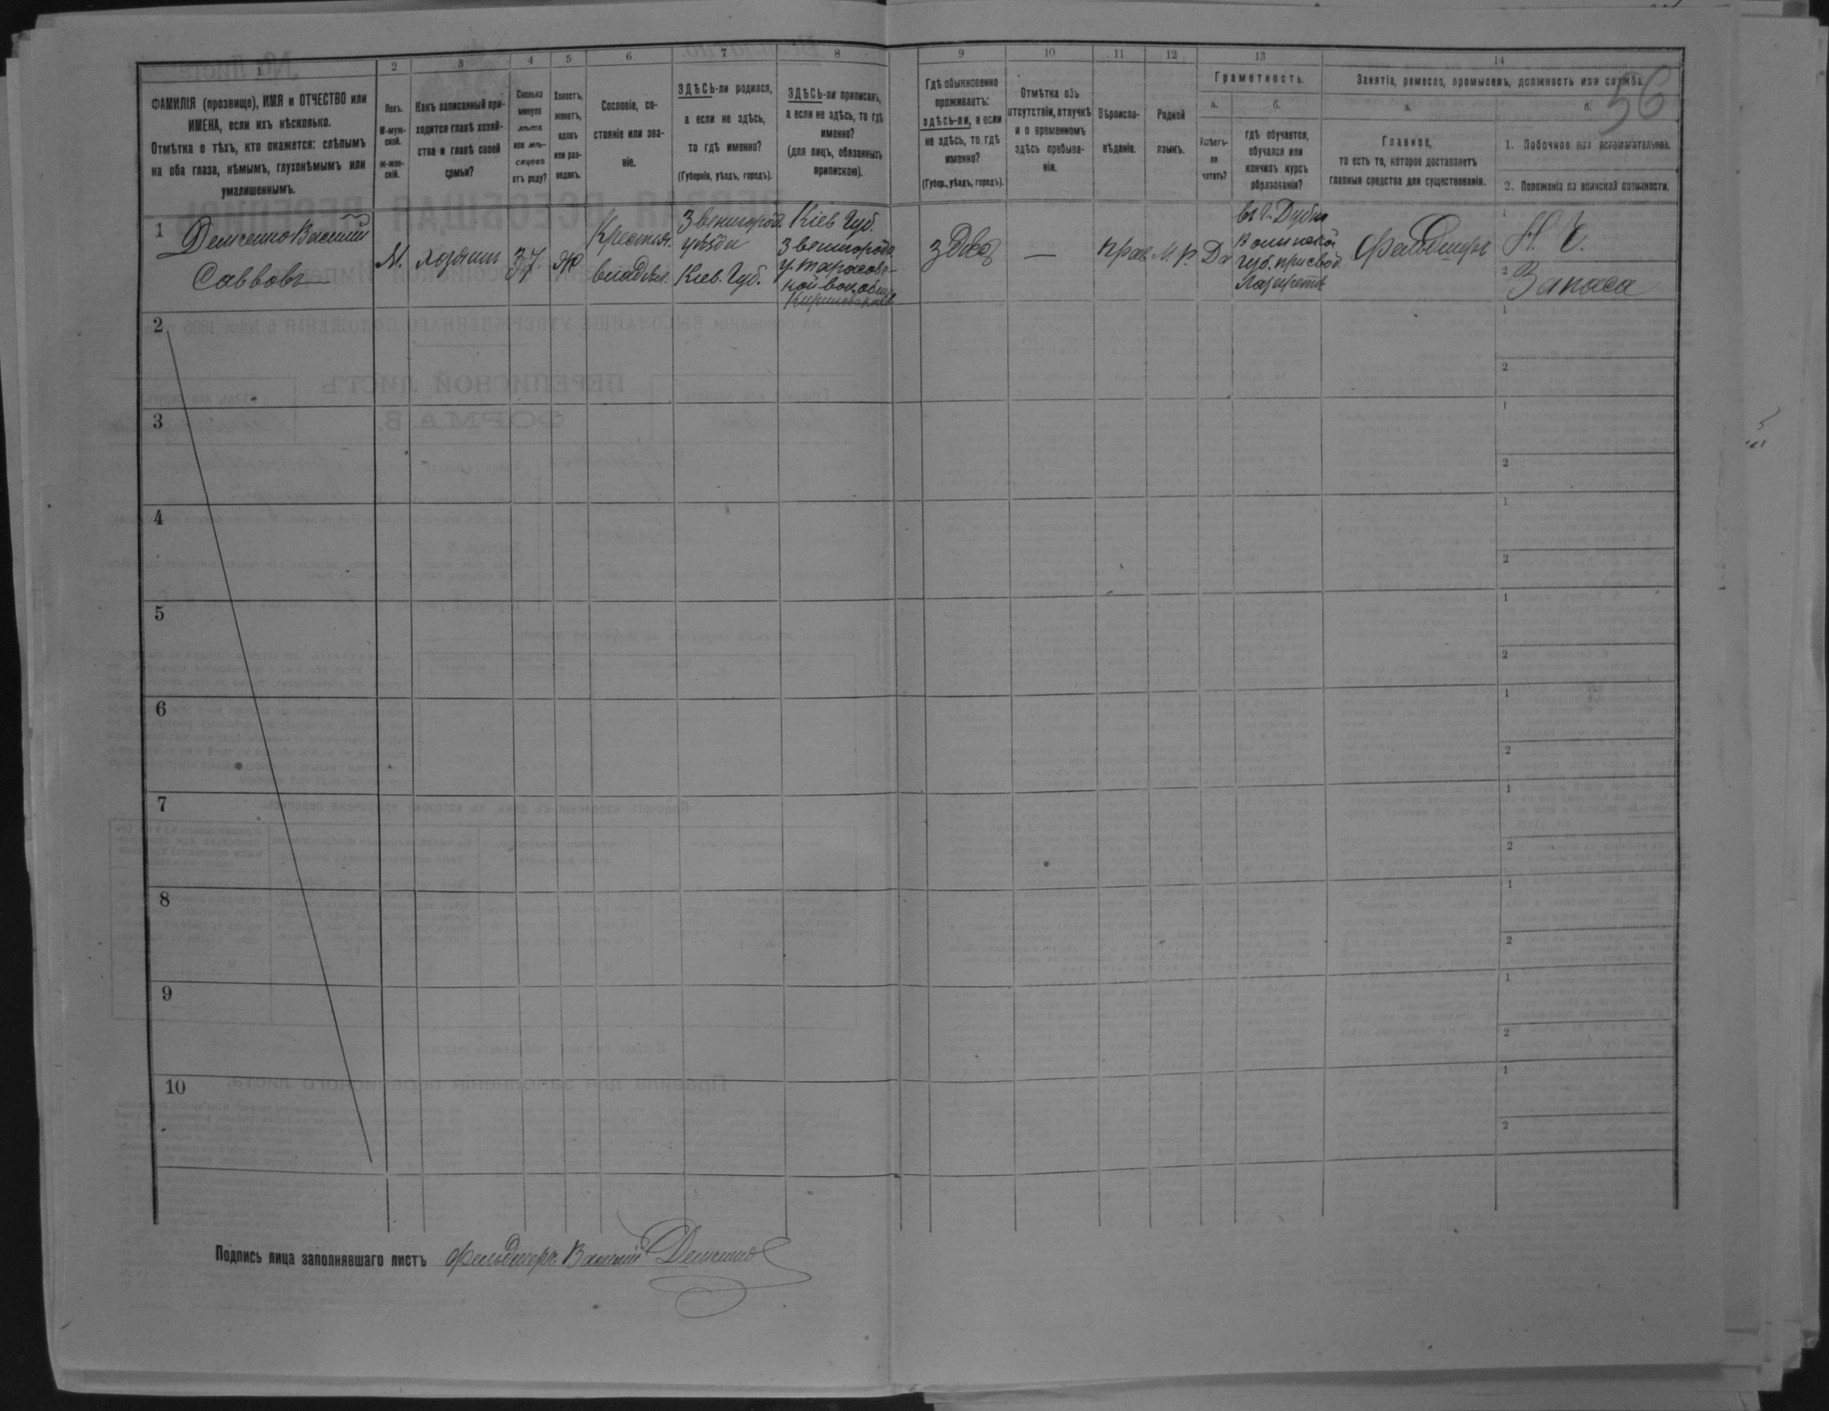 56
1 2 3 4 5 6 7 8 9 10 11 12 13 14
ФАМИЛІЯ (прозвище), ИМЯ и ОТЧЕСТВО или
ИМЕНА, если ихъ нѣсколько.
Отмѣтка о тѣхъ, кто окажется: слѣпымъ
на оба глаза, нѣмымъ, глухонѣмымъ или
умалишеннымъ.
Полъ.
М-муж-
ской.
Ж-жен-
скій.
Какъ записанный при-
ходится главѣ хозяй-
ства и главѣ своей
семьи?
Сколько
минуло
лѣтъ
или мѣ-
сяцевъ
отъ роду?
Холостъ,
женатъ,
вдовъ
или раз-
веденъ.
Сословіе, со-
стояніе или зва-
ніе.
ЗДѢСЬ-ли родился,
а если не здѣсь,
то гдѣ именно?
(Губернія, уѣздъ, городъ).
ЗДѢСЬ-ли приписанъ,
а если не здѣсь, то гдѣ
именно?
(для лицъ, обязанныхъ
припискою).
Гдѣ обыкновенно
проживаетъ:
здѣсь-ли, а если
не здѣсь, то гдѣ
именно?
(Губер., уѣздъ, городъ).
Отмѣтка объ
отсутствіи, отлучкѣ
и о временномъ
здѣсь пребыва-
ніи.
Вѣроиспо-
вѣданіе.
Родной
языкъ.
Грамотность.
а.
Умѣетъ-
ли
читать?
б.
гдѣ обучается,
обучался или
кончилъ курсъ
образованія?
Занятіе, ремесло, промыселъ, должность или служба.
а.
Главное,
то есть то, которое доставляетъ
главныя средства для существованія.
б.
1. Побочное или вспомогательное.
2. Положеніе по воинской повинности.
1
Демченко Василій
Саввовъ
М.
хозяинъ
37
Ж
Крестьян.
владѣл.
Звенигород.
уѣзда
Кіев. Губ.
Кіев Губ.
Звенигород.
у. Тарасов-
ной вол. общ.
здѣсь
—
Прав.
М. Р.
Да
въ г. Дубно
Волынской
Губ. при свод.
Лазаретѣ
Фельдшеръ
1
Н. Ч.
2
Запаса
2
1
2
3
1
2
4
1
2
5
1
2
6
1
2
7
1
2
8
1
2
9
1
2
10
1
2
Подпись лица заполнявшаго листъ Фельдшеръ Василій Демченко